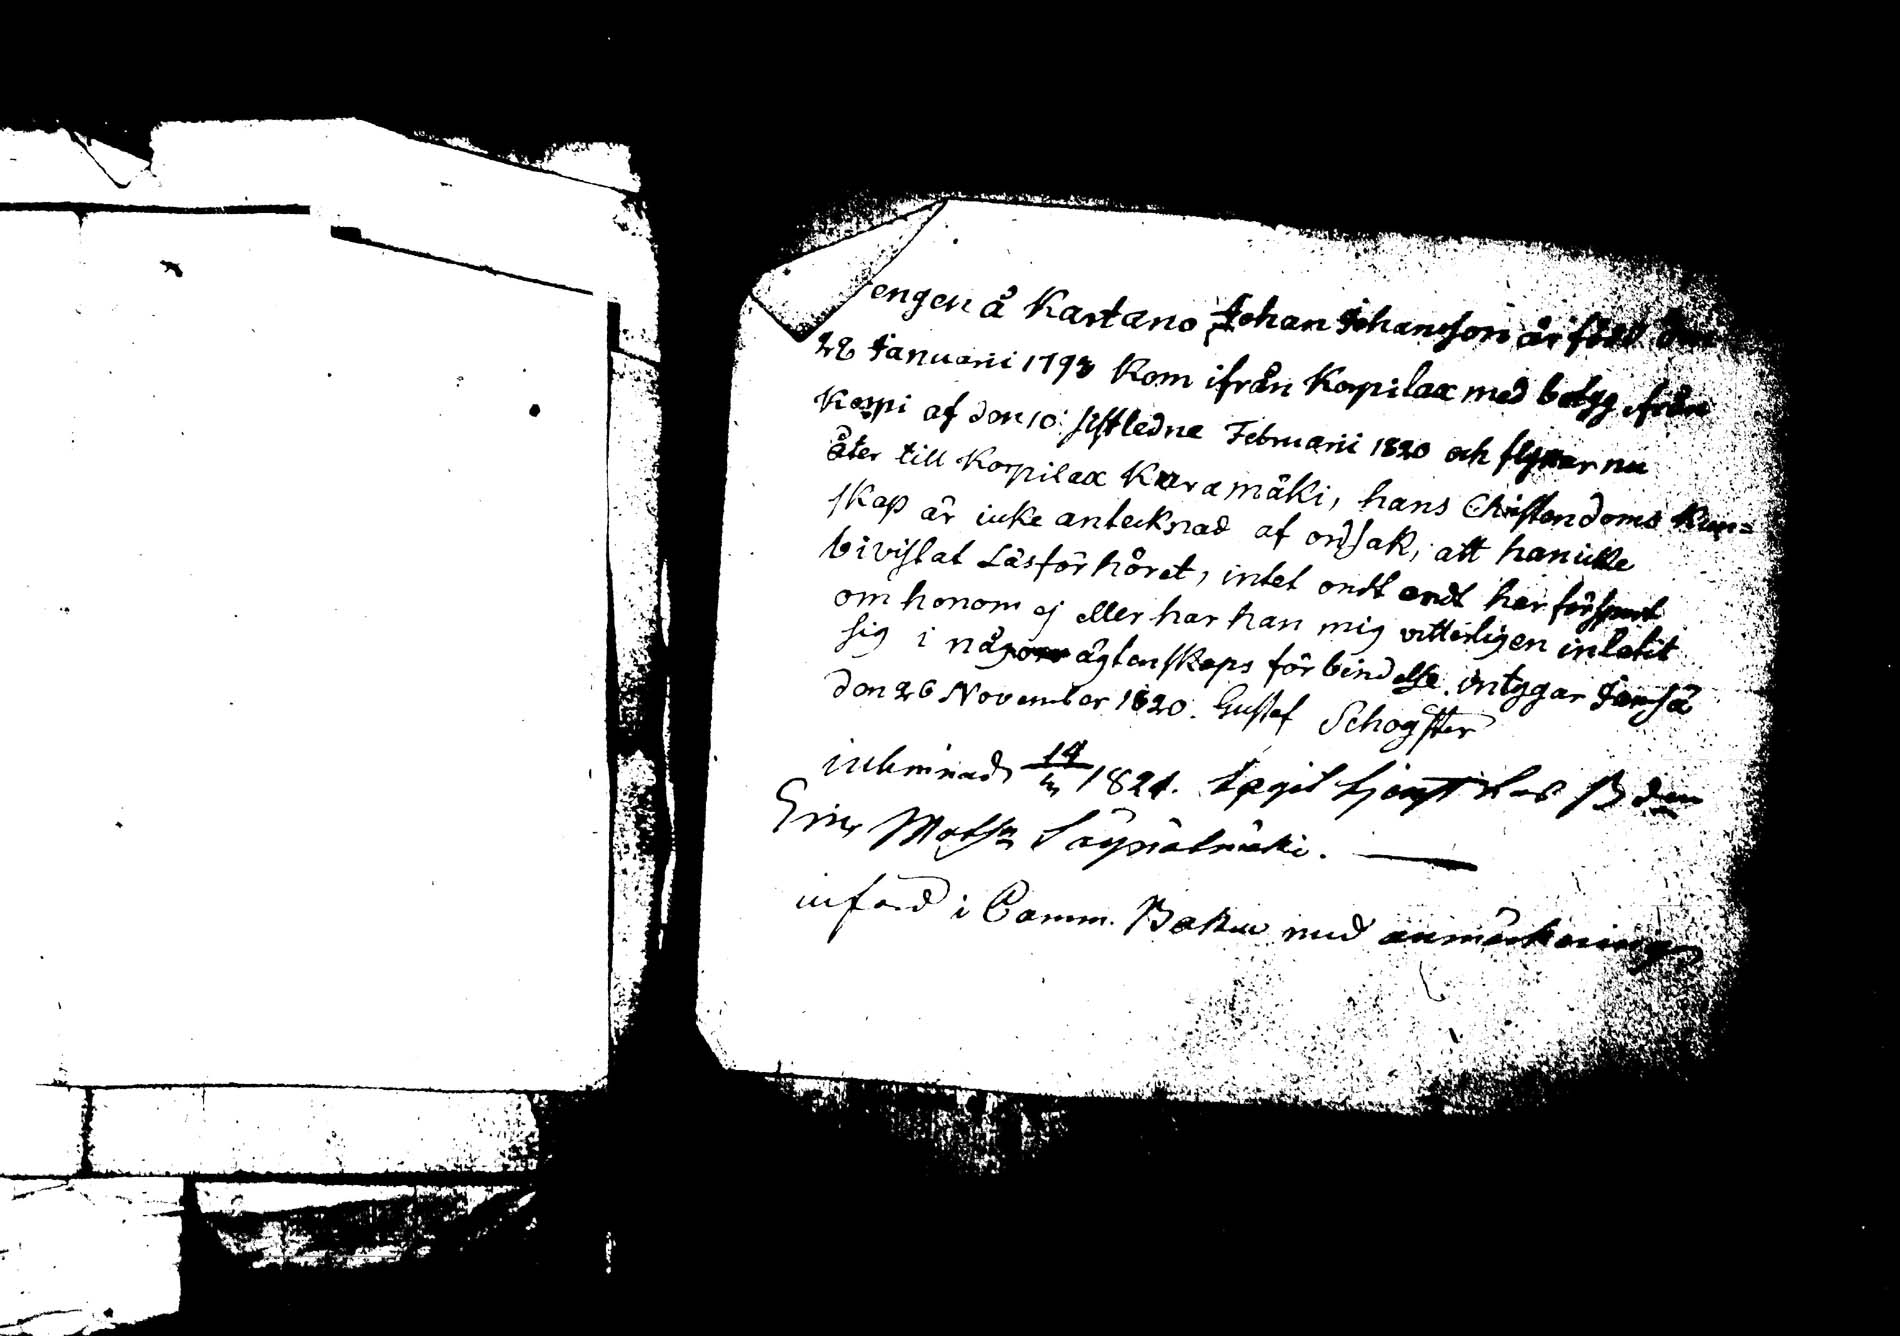 engen å Kartano Johan Johansson är född den
28 Januarii 1793 Kom ifrån Korpilax med betyg ifrån
Korpi af den 10 sistledne Februarii 1820 och flyttar nu
åter till Korpilax Karamäki, hans Christendoms Kun=
skap är icke antecknad af ordsak, att han icke
bivistat Läsförhöret, intet ondt ondt har försport
om honom ej eller har han mig vitterligen inlåtit
sig i någon ägtenskaps förbindelse. intygar Jamsä
den 26 November 1820. Gustaf Schogster
inlemnad 14/4 1821. hos B den
Eric Matss
införd i Comm. Boken med anmärkning